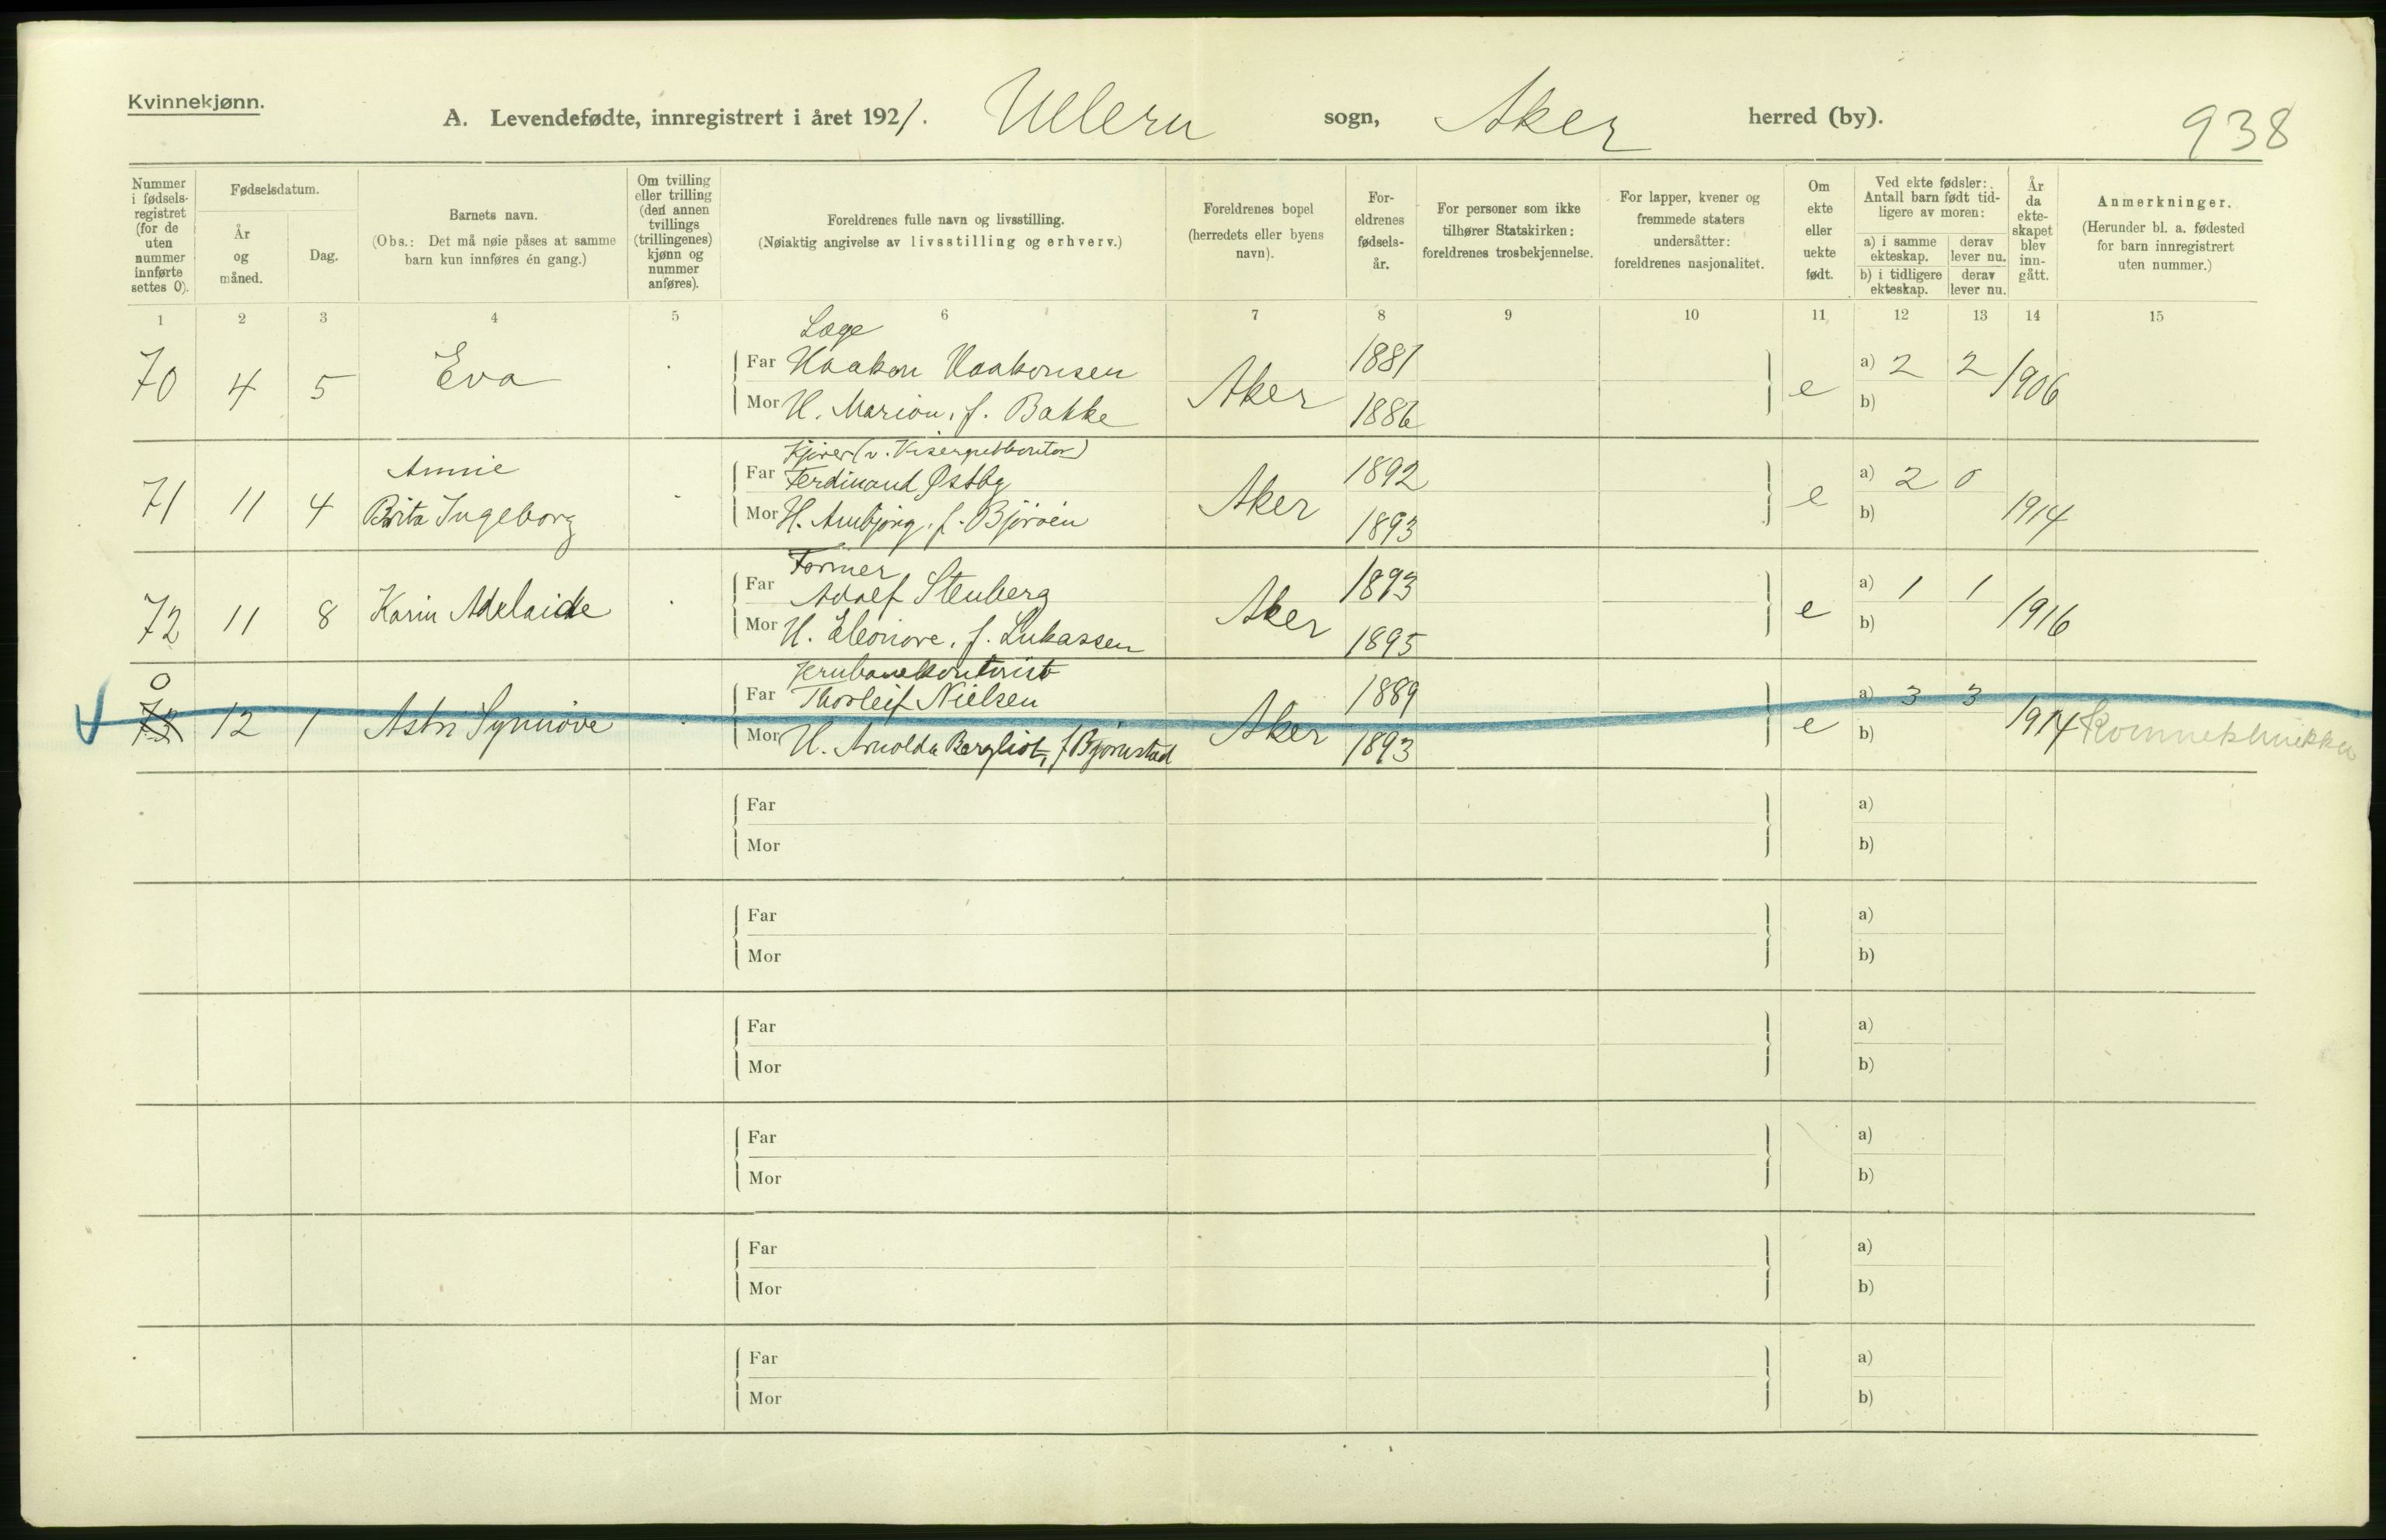 Kvinnekjønn.
A. Levendefødte, innregistrert i året 1921. Ullern sogn, Aker herred (by).
938
Nummer i fødsels-registret (for de uten nummer innførte settes 0).
Fødselsdatum.
År og måned.
Dag.
Barnets navn.
(Obs.: Det må nøie påses at samme barn kun innføres én gang.)
Om tvilling eller trilling (den annen tvillings (trillingenes) kjønn og nummer anføres).
Foreldrenes fulle navn og livsstilling.
(Nøiaktig angivelse av livsstilling og erhverv.)
Foreldrenes bopel (herredets eller byens navn).
For-eldrenes fødsels-år.
For personer som ikke tilhører Statskirken: foreldrenes trosbekjennelse.
For lapper, kvener og fremmede staters undersåtter: foreldrenes nasjonalitet.
Om ekte eller uekte født.
Ved ekte fødsler: Antall barn født tid-ligere av moren:
a) i samme ekteskap. derav lever nu.
b) i tidligere ekteskap. derav lever nu.
År da ekte-skapet blev inn-gått.
Anmerkninger.
(Herunder bl. a. fødested for barn innregistrert uten nummer.)
1 2 3 4 5 6 7 8 9 10 11 12 13 14 15
Læge
70 4 5 Eva Far Haakon Haakonsen Aker 1881 e a) 2 2 1906
Mor H. Marion, f. Bakke 1886 b)
Annie
71 11 4 Brita Ingeborg Far Ferdinand Østby Aker 1892 e a) 2 0 1914
Mor H. Arnbjørg, f. 1893 b)
Former
72 11 8 Karin Adelaide Far Adolf Stenberg Aker 1893 e a) 1 1 1916
Mor H. Eleonore, f. Lukassen 1895 b)
0
Jernbanekontorist
73 12 1 Astri Synnøve Far Thorleif Nielsen Aker 1889 e a) 3 3 1914
Mor H. Arnolda Bergliot, f. Bjørnstad 1893 b)
Far a)
Mor b)
Far a)
Mor b)
Far a)
Mor b)
Far a)
Mor b)
Far a)
Mor b)
Far a)
Mor b)